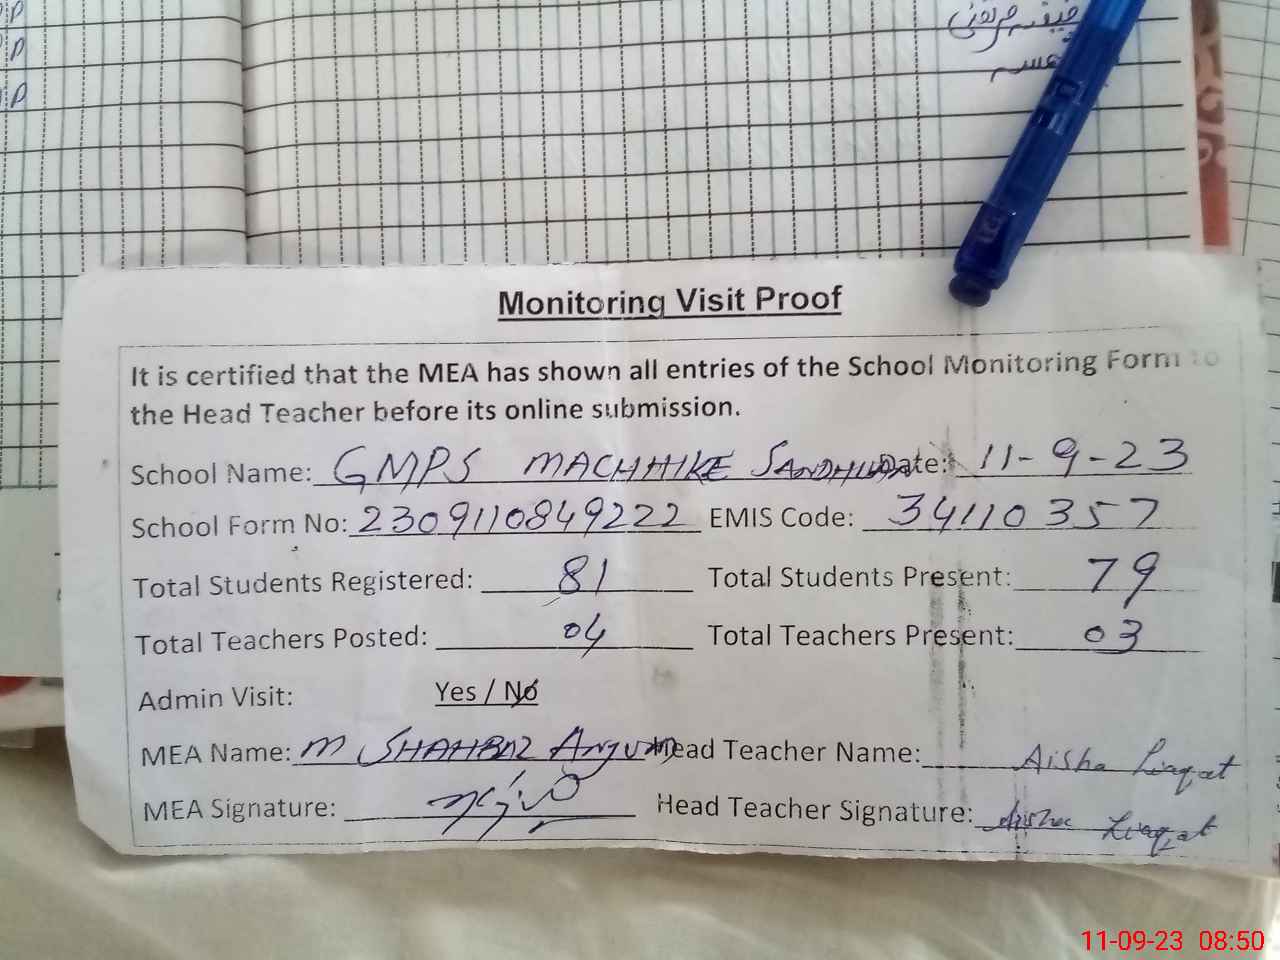 Monitoring Visit Proof
It is certified that the MEA has shown all entries of the School Monitoring Form to
the Head Teacher before its online submission.
School Name: GMPS MACHHIKE SANDHUAN Date: 11-9-23
School Form No: 2309110849222 EMIS Code: 34110357
Total Students Registered: 81 Total Students Present: 79
Total Teachers Posted: 04 Total Teachers Present: 03
Admin Visit: Yes / No
MEA Name: M SHAHBAZ Anjum Head Teacher Name: Aisha Liaqat
MEA Signature: Head Teacher Signature: Aisha Liaqat
11-09-23 08:50